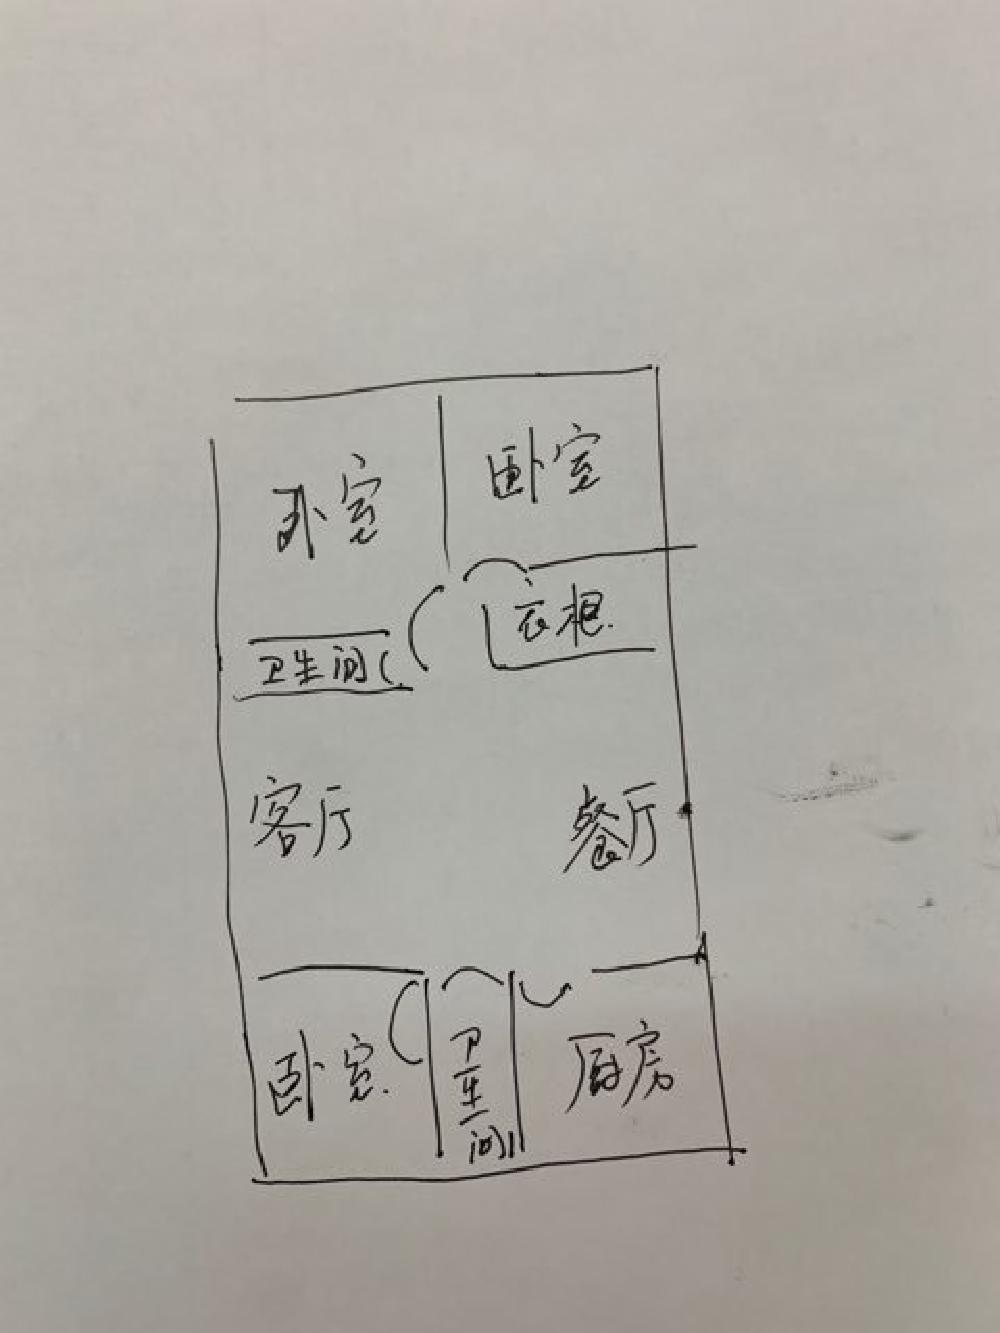 卧室
卧室
衣柜
卫生间
客厅
餐厅
卧室
卫生间
厨房